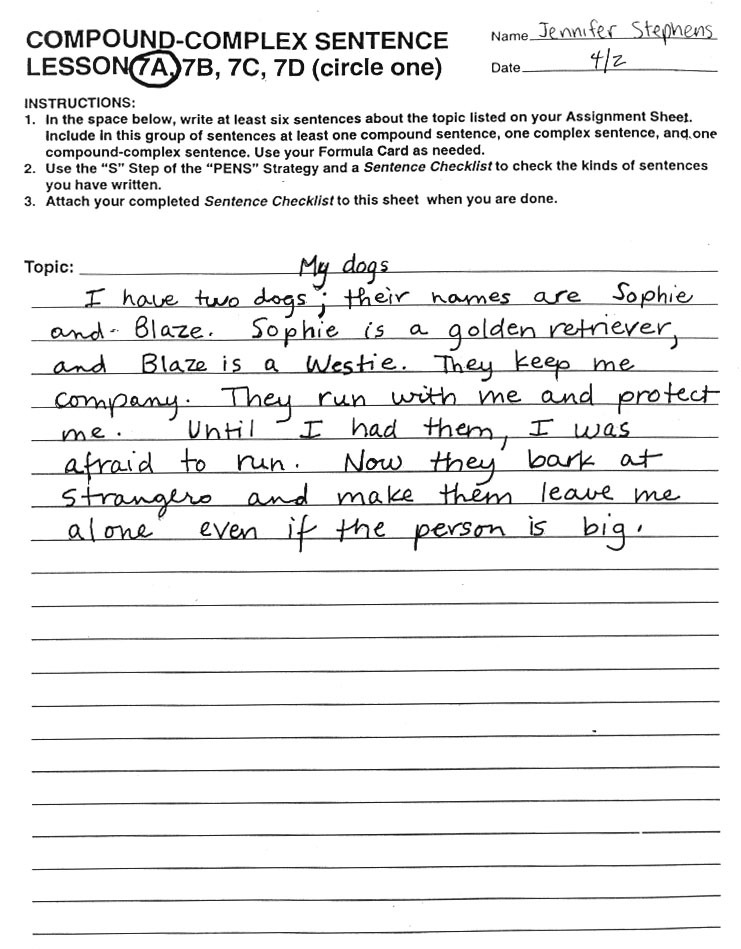 COMPOUND-COMPLEX SENTENCE
LESSON 7A, 7B, 7C, 7D (circle one)
Name Jennifer Stephens
Date 4/2
INSTRUCTIONS:
1. In the space below, write at least six sentences about the topic listed on your Assignment Sheet.
Include in this group of sentences at least one compound sentence, one complex sentence, and one
compound-complex sentence. Use your Formula Card as needed.
2. Use the “S” Step of the “PENS” Strategy and a Sentence Checklist to check the kinds of sentences
you have written.
3. Attach your completed Sentence Checklist to this sheet when you are done.
Topic: My dogs
I have two dogs; their names are Sophie
and Blaze. Sophie is a golden retriever,
and Blaze is a Westie. They keep me
company. They run with me and protect
me. Until I had them, I was
afraid to run. Now they bark at
strangers and make them leave me
alone even if the person is big.